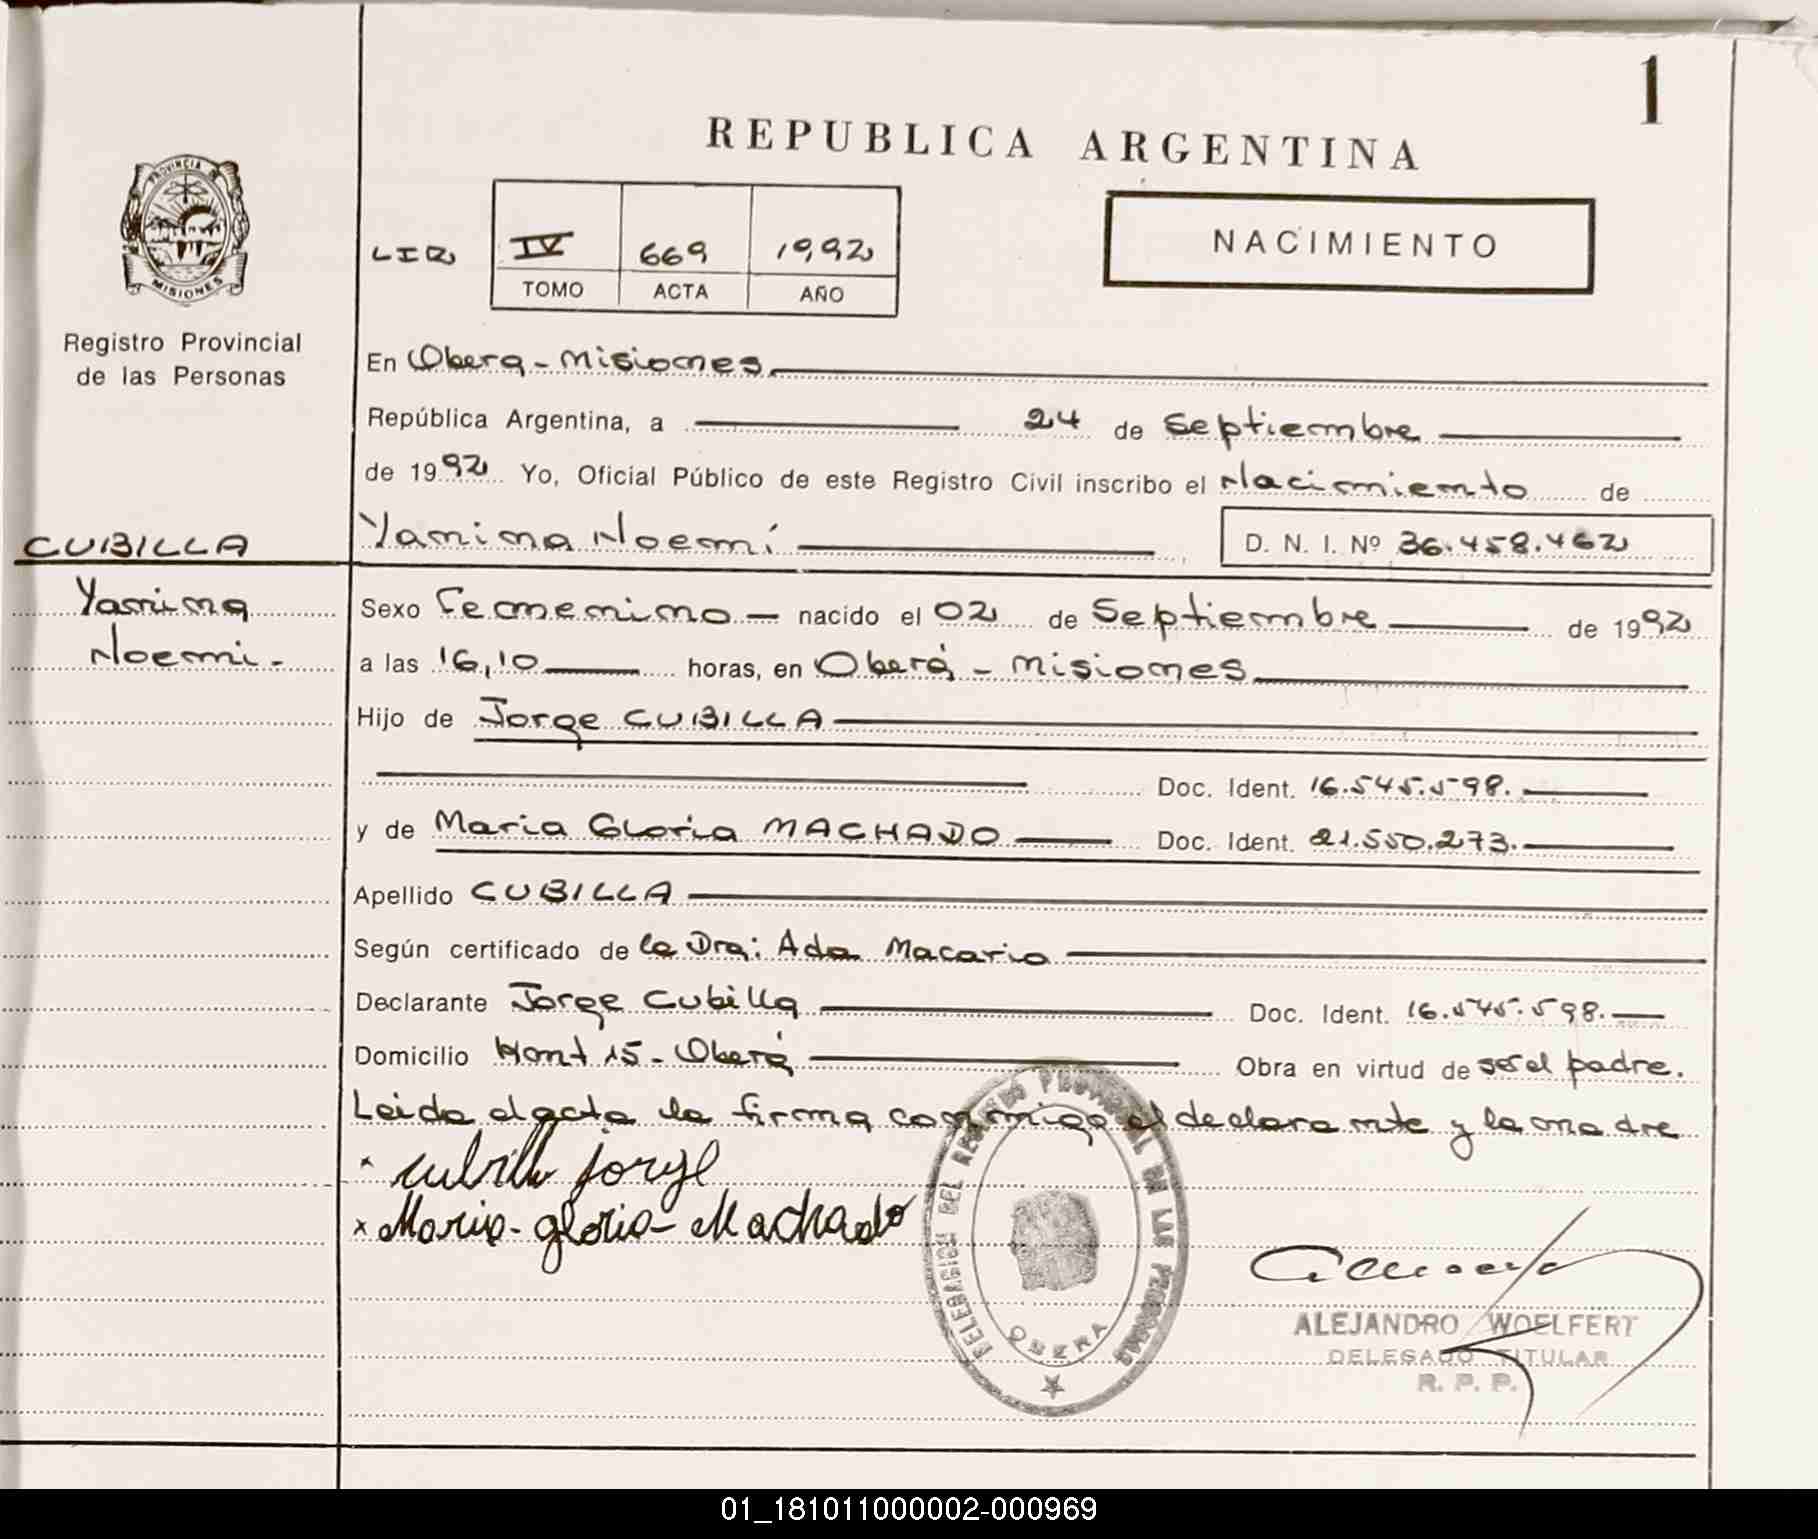 1
REPUBLICA ARGENTINA
PROVINCIA DE
MISIONES
Registro Provincial
de las Personas
IV 669 1992
TOMO ACTA AÑO
NACIMIENTO
En Obera - Misiones
República Argentina, a 24 de Septiembre
de 1992 Yo, Oficial Público de este Registro Civil inscribo el Nacimiento de
CUBILLA
Yanina Noemí D. N. I. Nº 36.458.462
Yanina
Noemi.-
Sexo Femenino — nacido el 02 de Septiembre de 1992
a las 16,10 horas, en Oberá - Misiones
Hijo de Jorge CUBILLA
Doc. Ident. 16.545.598.
y de Maria Gloria MACHADO Doc. Ident. 21.550.273.
Apellido CUBILLA
Según certificado de la Dra: Ada Macario
Declarante Jorge Cubilla Doc. Ident. 16.545.598.
Domicilio 15 - Oberá Obra en virtud de ser el padre.
Leida el acta la firma conmigo el declarante y la madre
x Cubilla jorge
x Maria - gloria - Machado
DELEGACION DEL REGISTRO PROVINCIAL DE LAS PERSONAS
OBERA
ALEJANDRO WOELFERT
DELEGADO TITULAR
R. P. P.
01_181011000002-000969